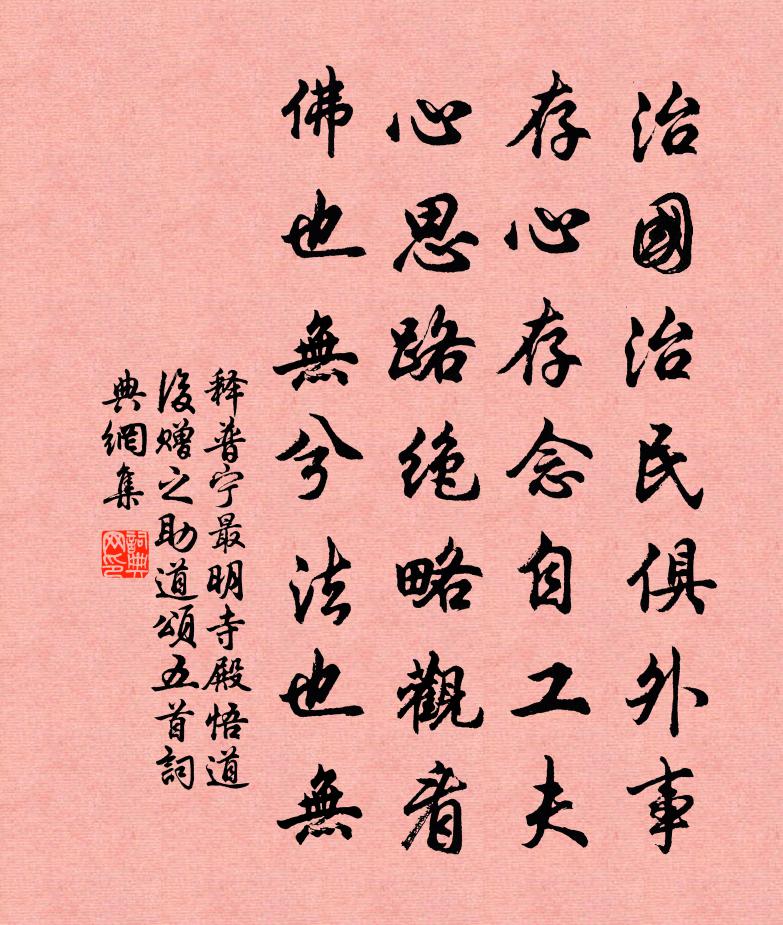 治國治民俱外事
存心存念自工夫
心思路絶略觀看
佛也無兮法也無
释普宁最明寺殿悟道
後赠之助道頌五首詞
典網集
詞典网印